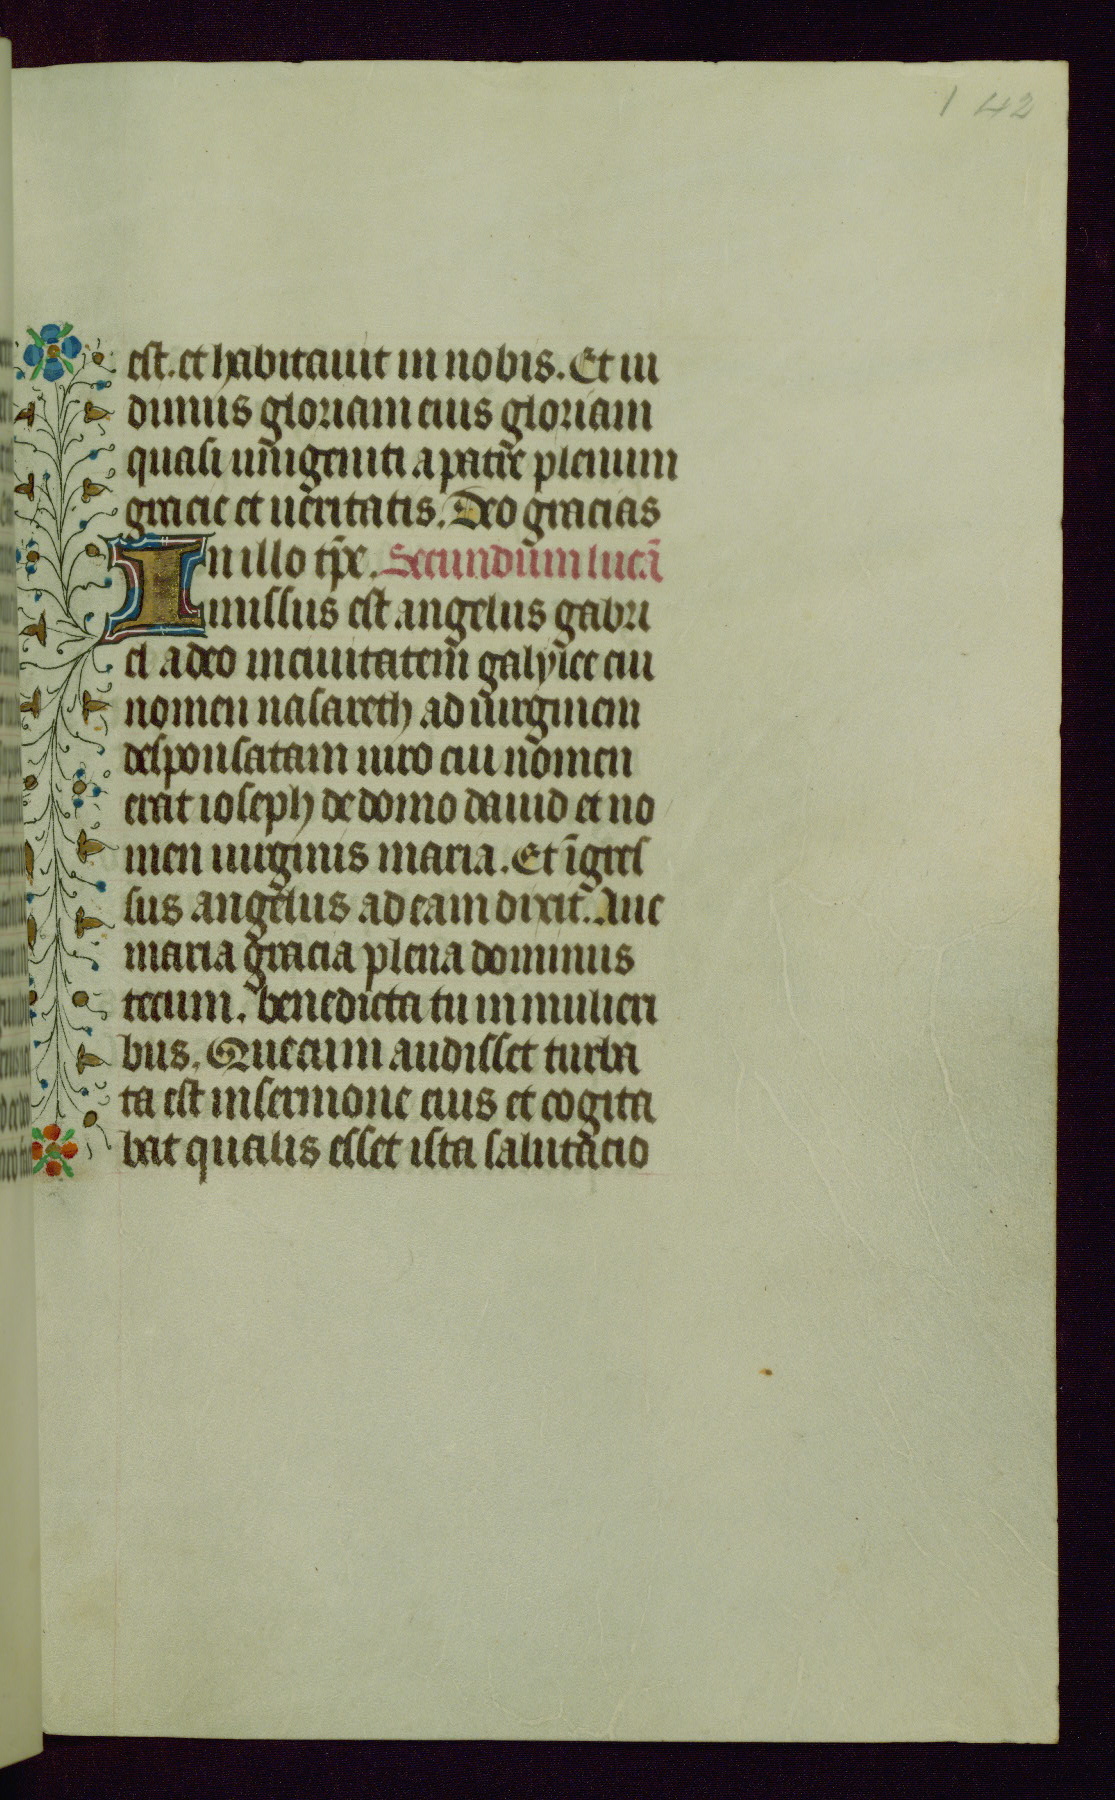 1 42
est. et habitauit in nobis. Et ui
dimus gloriam eius gloriam
quasi unigeniti a patre plenum
gracie et ueritatis. Deo gracias
In illo tp̄e. Secundum lucā
missus est angelus gabri
el a deo in ciuitatem galylee cui
nomen nasareth ad uirginem
desponsatam uiro cui nomen
erat ioseph de domo dauid et no
men uirginis maria. Et īgres
sus angelus ad eam dixit. Aue
maria gracia plena dominus
tecum. benedicta tu in mulieri
bus. Que cum audisset turba
ta est in sermone eius et cogita
bat qualis esset ista salutacio